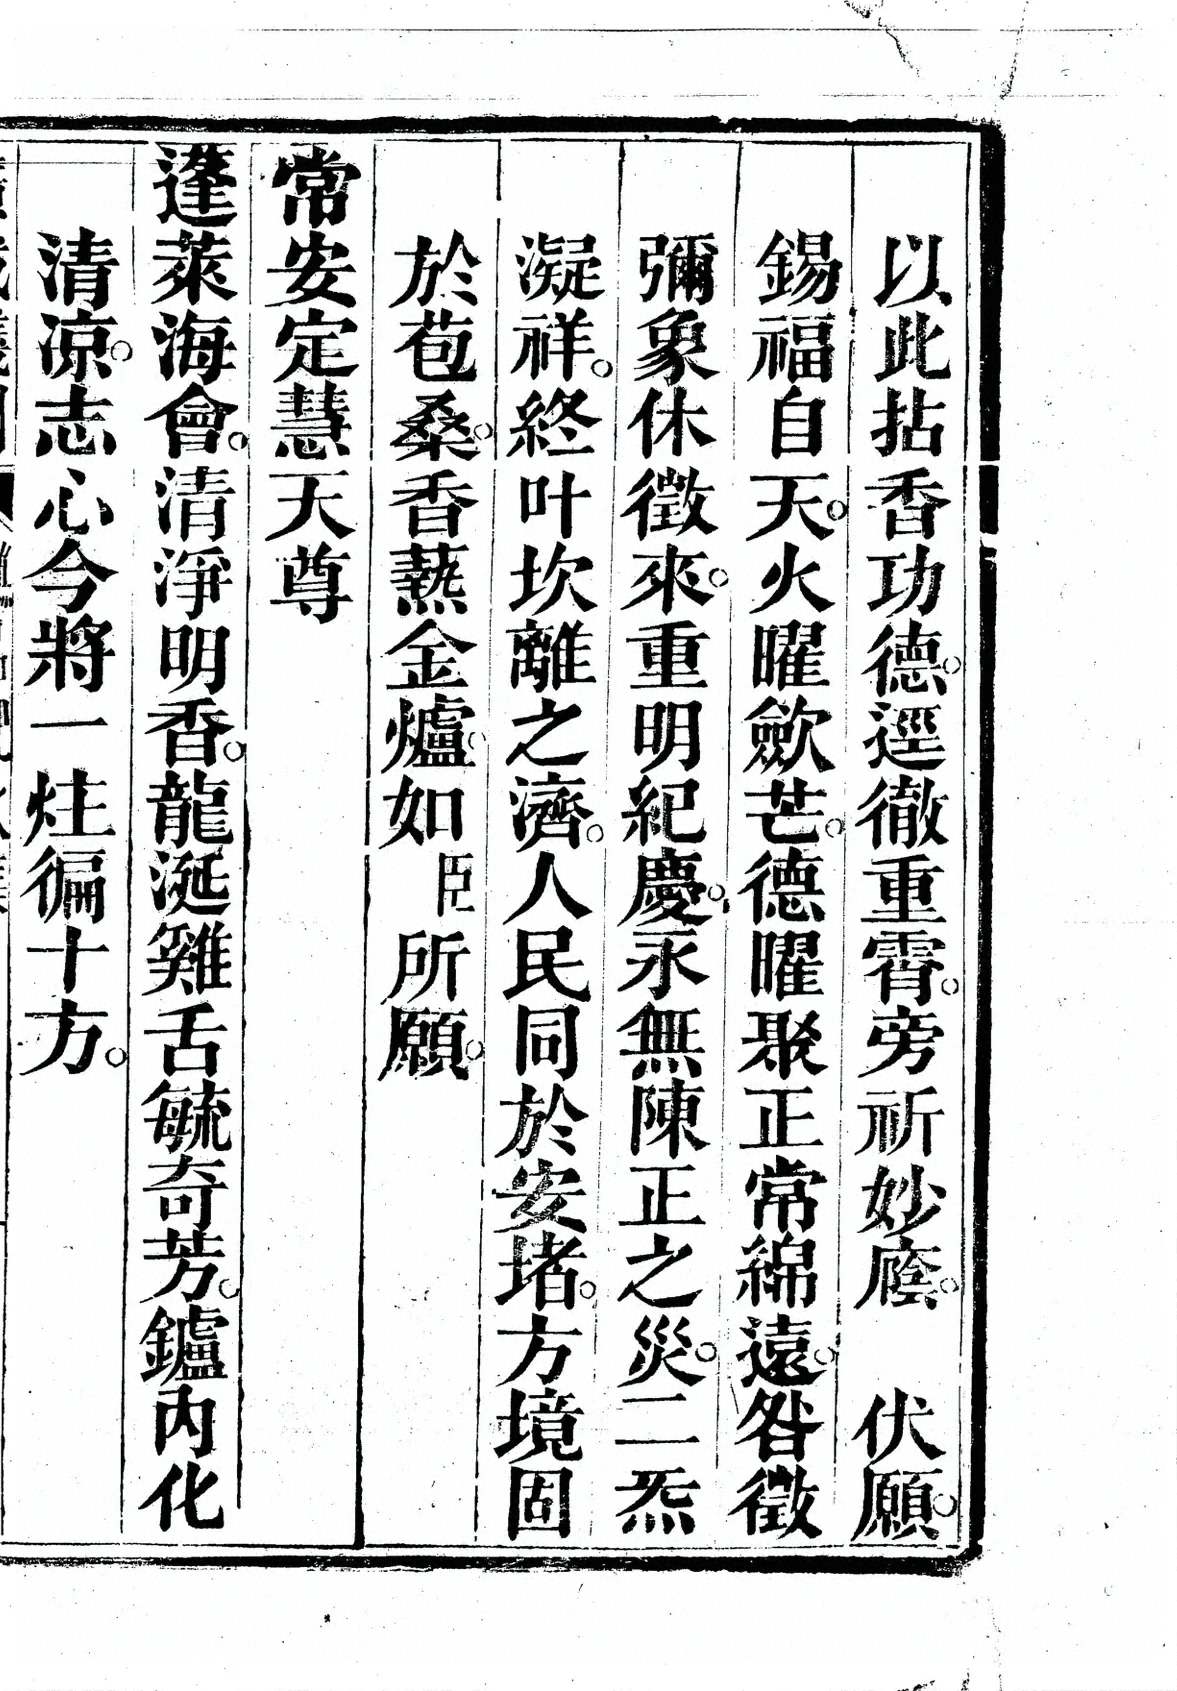 以此拈香功德。逕徹重霄。旁祈妙廕。　伏願。
錫福自天。火曜歛芒。德曜聚正常綿遠。咎徵
彌象休徵來。重明紀慶。永無陳正之災。二炁
凝祥。終叶坎離之濟。人民同於安堵。方境固
於苞桑。香爇金爐。如臣所願。
常安定慧天尊
蓬萊海會。清淨明香。龍涎雞舌毓奇芳。鑪內化
清凉。志心今將一炷徧十方。